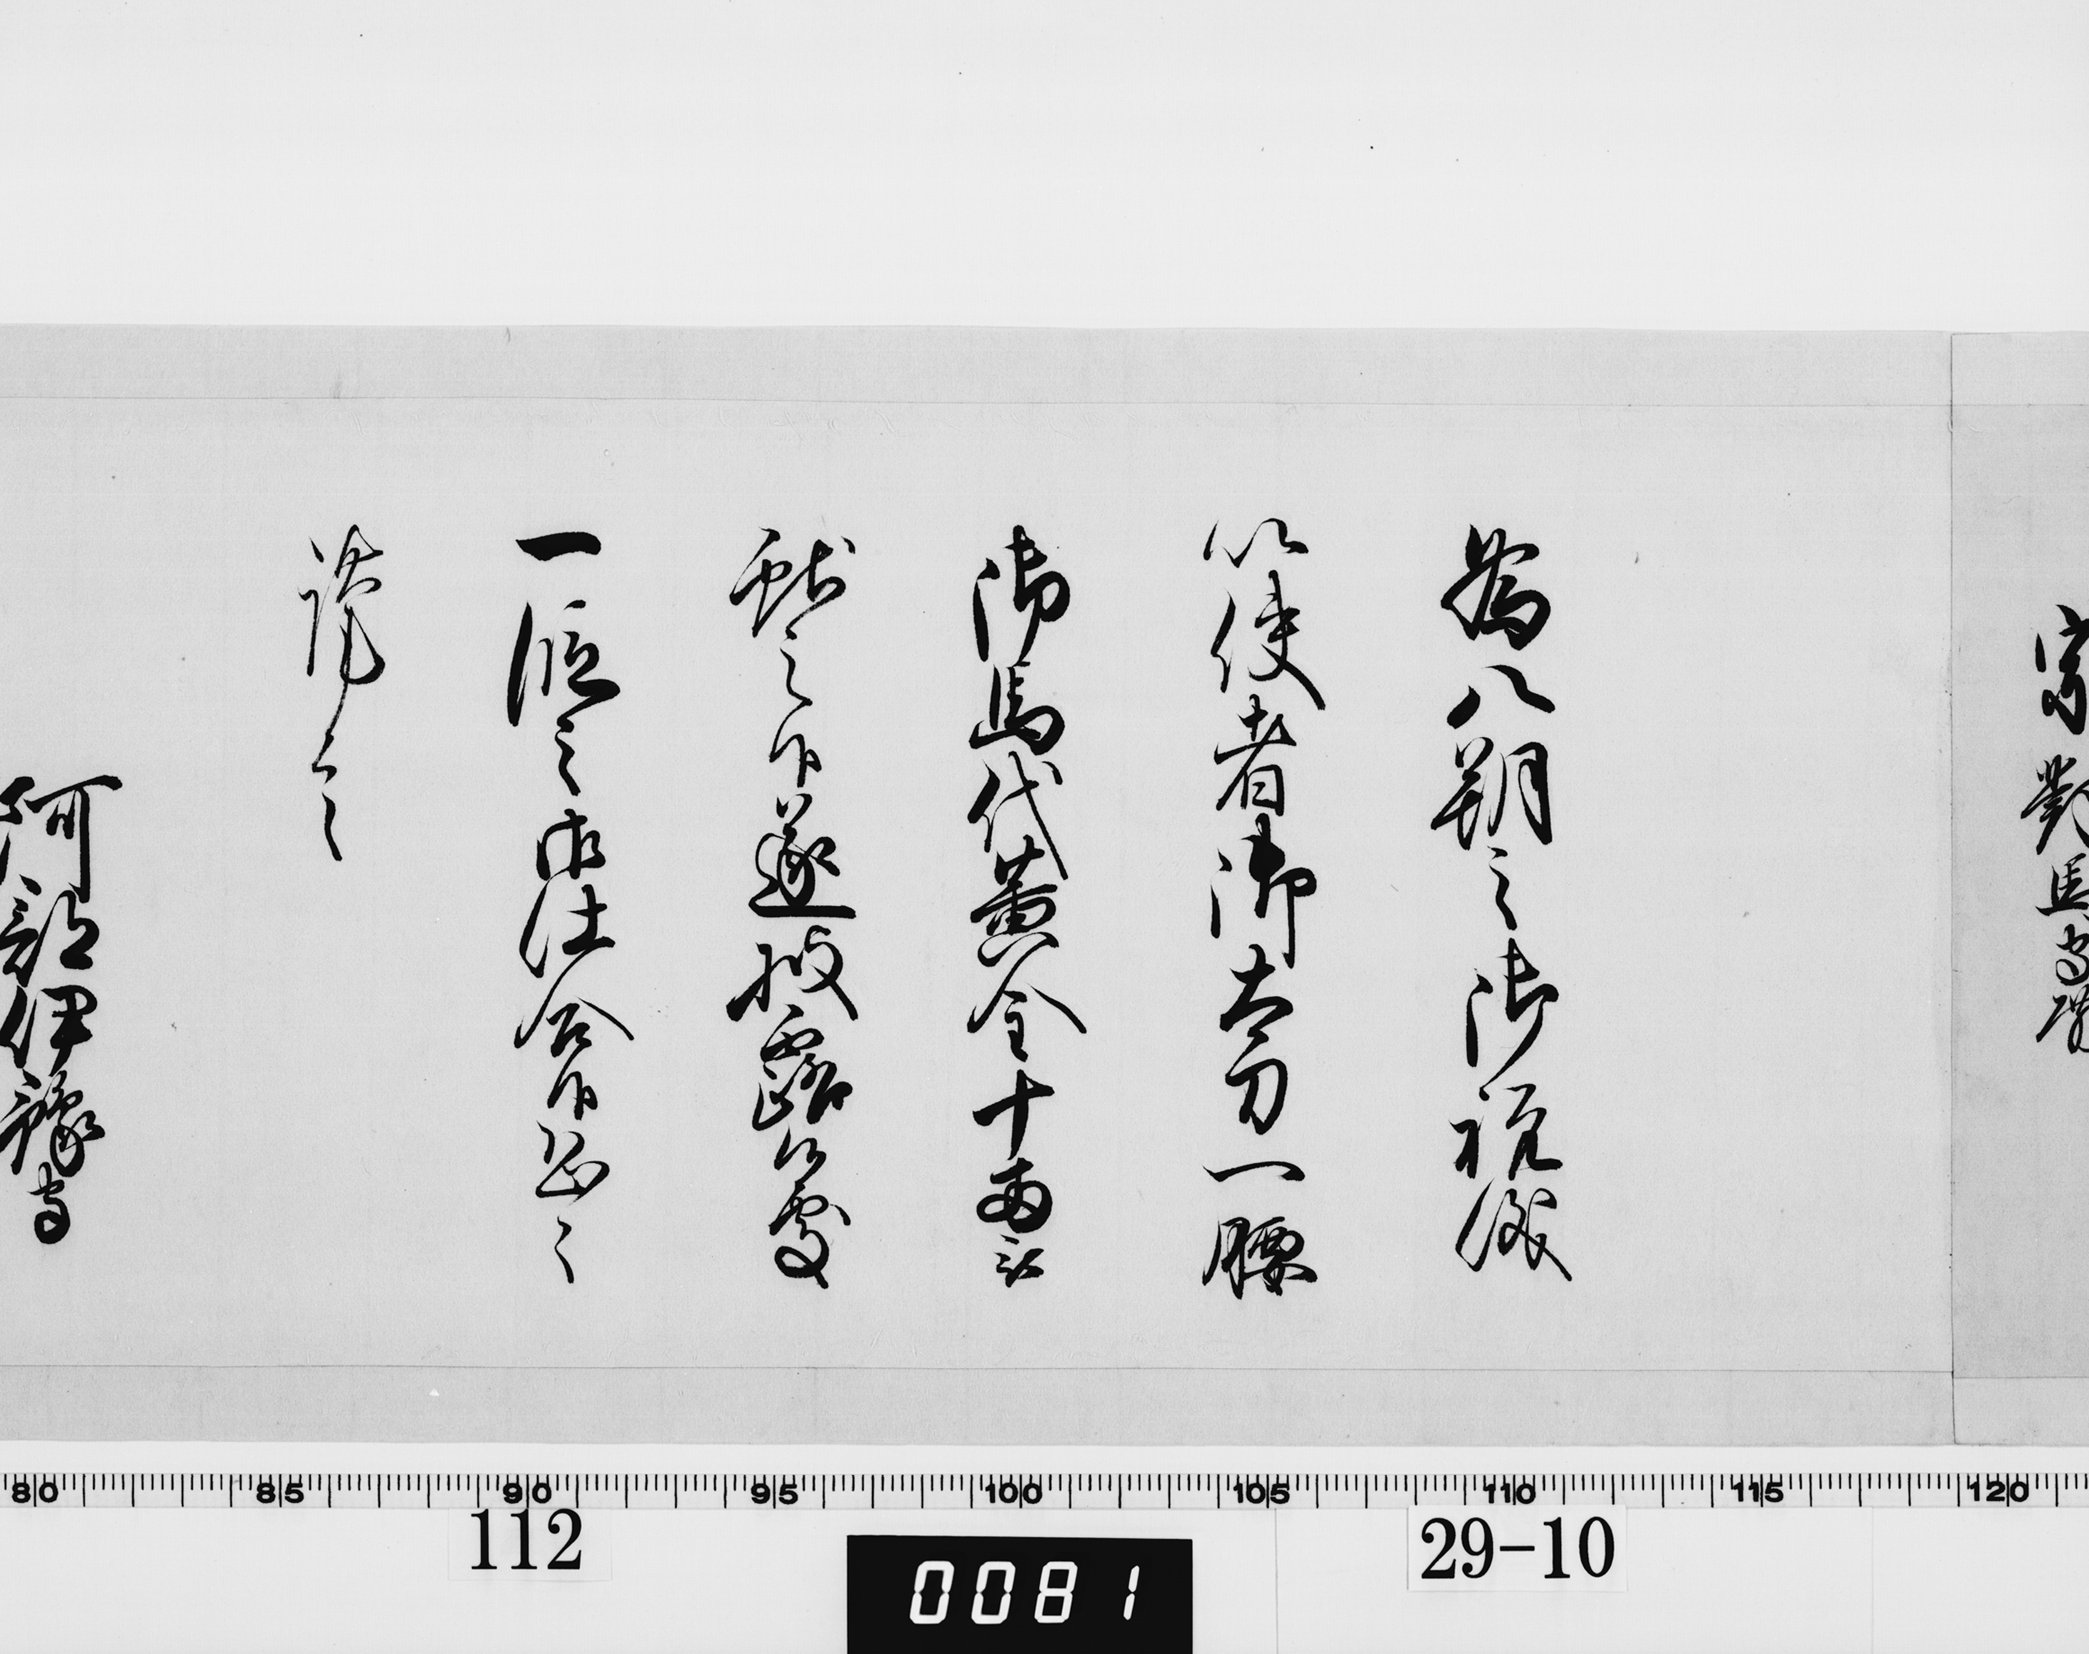 宗對馬守殿
為八朔之御祝儀
以使者御太刀一腰
御馬代黄金十両被
献之候遂披露候處
一段之御仕合候恐々
謹言
阿部伊豫守
80 85 90 95 100 105 110 115 120
112
29-10
0081